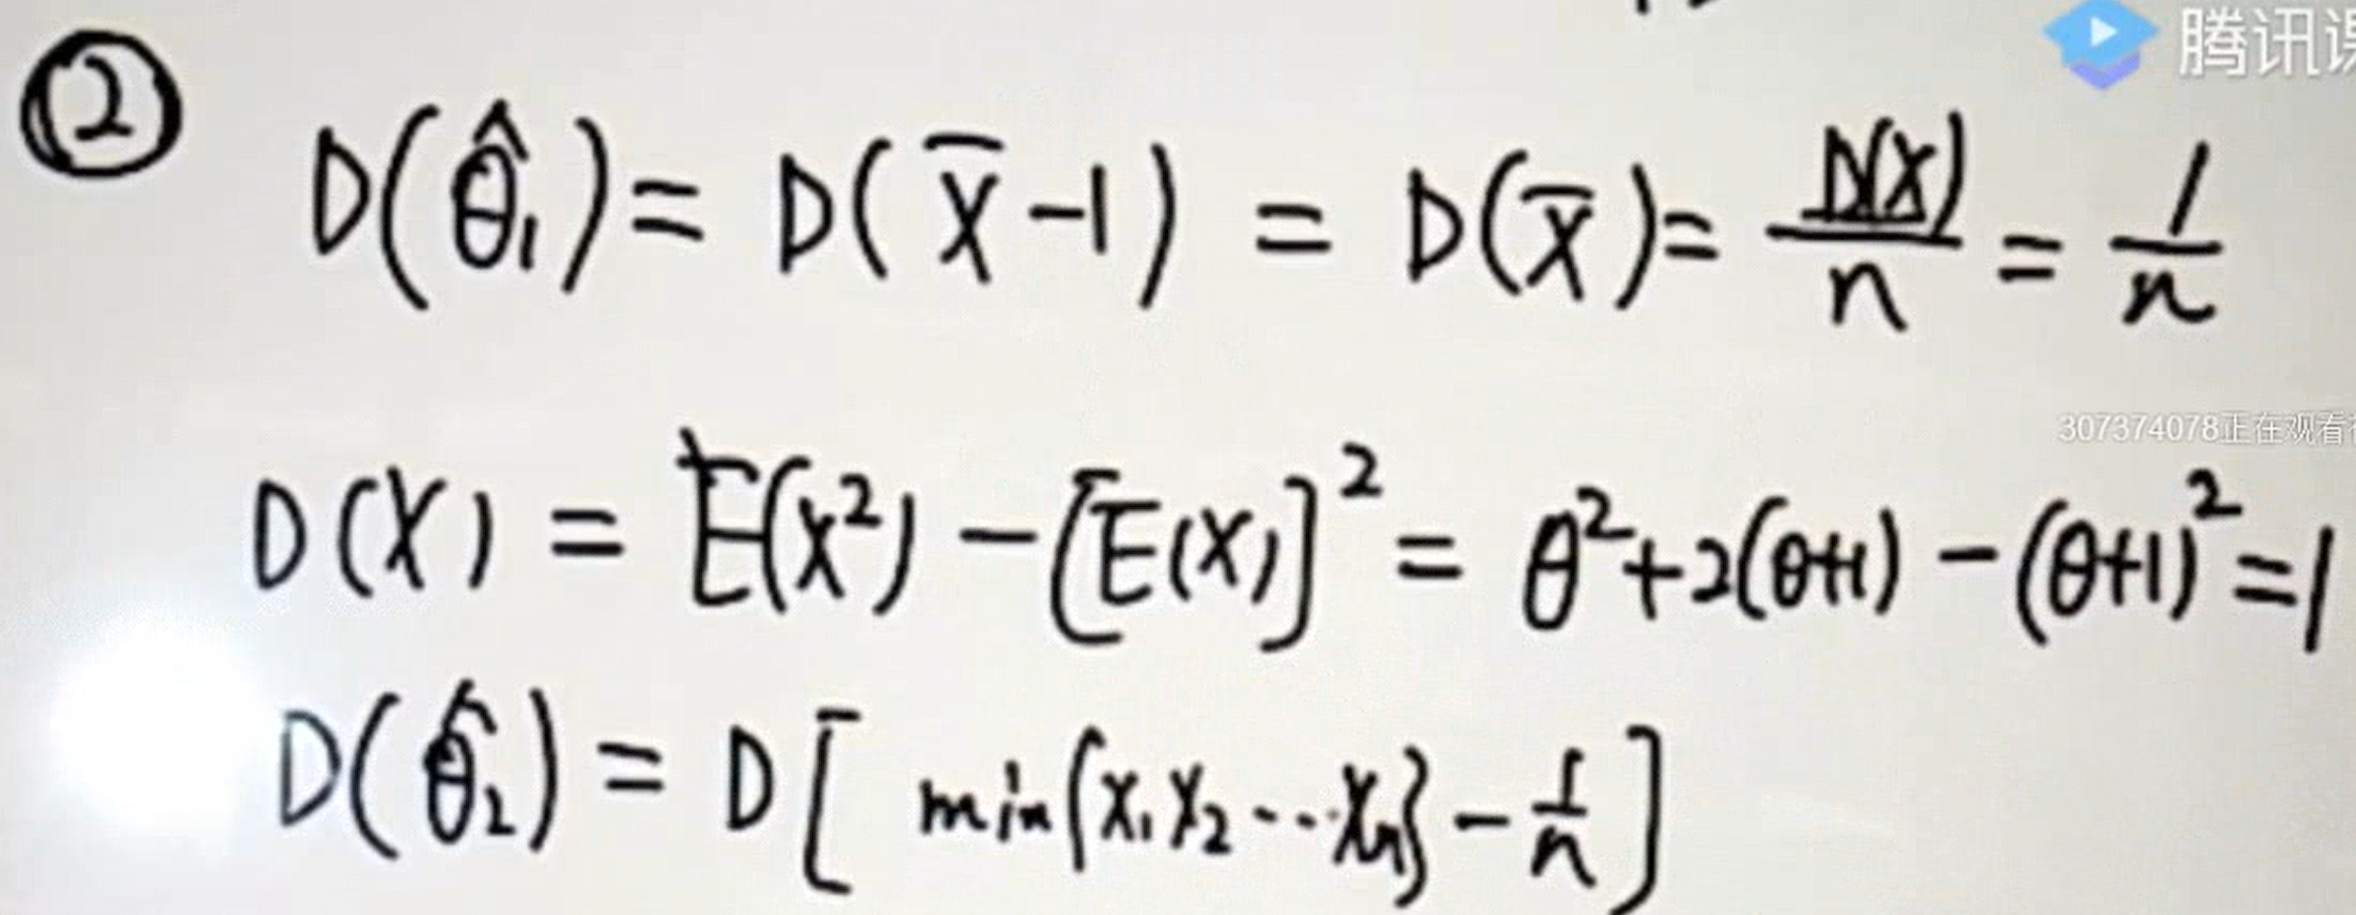 腾讯课
② D(θ̂₁) = D(X̄ - 1) = D(X̄) = D(X)/n = 1/n
307374078正在观看
D(X) = E(X²) - [E(X)]² = θ² + 2(θ+1) - (θ+1)² = 1
D(θ̂₂) = D[min{X₁X₂⋯Xₙ} - 1/n]